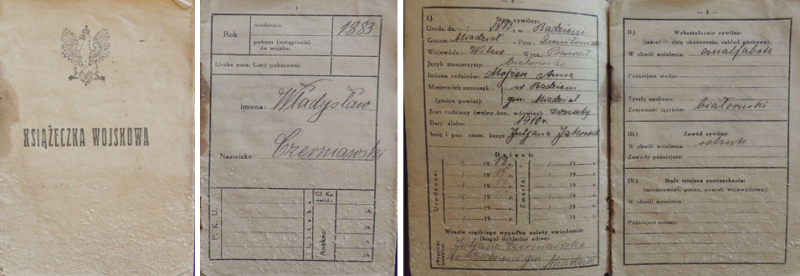 KSIĄŻECZKA WOJSKOWA
Rok
urodzenia: 1883
poboru (wstąpienia)
do wojska:
Liczba porz. Listy poborowej:
Imiona: Władysław
Nazwisko: Czerniawski
P. K. U.
I.) Stan cywilny:
Urodz. dn. 1883, w Radzieni
Gmina: Miadzioł Pow.:
Województw.: Wilno Wyzn.
Język macierzysty: białoruski
Imiona rodziców: Anna
Miejsce ich zamieszk.: w Radzieni
(gmina, powiat): gm. Miadzioł
Stan rodzinny (wolny, żon., wdowiec): żonaty
Data ślubu: 1910 r.
Imię i pon. nazw. żony: Juljana
Dzieci
Urodzone:
Zmarłe:
W razie ciężkiego wypadku należy zawiadomić:
(kogo? dokładny adres)
Juljana Czerniawska
gm. Miadzioł
II.) Wykształcenie cywilne:
(jakie? data ukończenia, zakład naukowy)
W chwili wcielenia: analfabeta
Późniejsze studja:
Tytuły naukowe:
Znajomość języków: białoruski
III.) Zawód cywilny:
W chwili wcielenia: rolnik
Zawody późniejsze:
IV.) Stałe miejsce zamieszkania:
(miejscowość, gmina, powiat, województwo)
W chwili wcielenia:
Późniejsze zmiany: